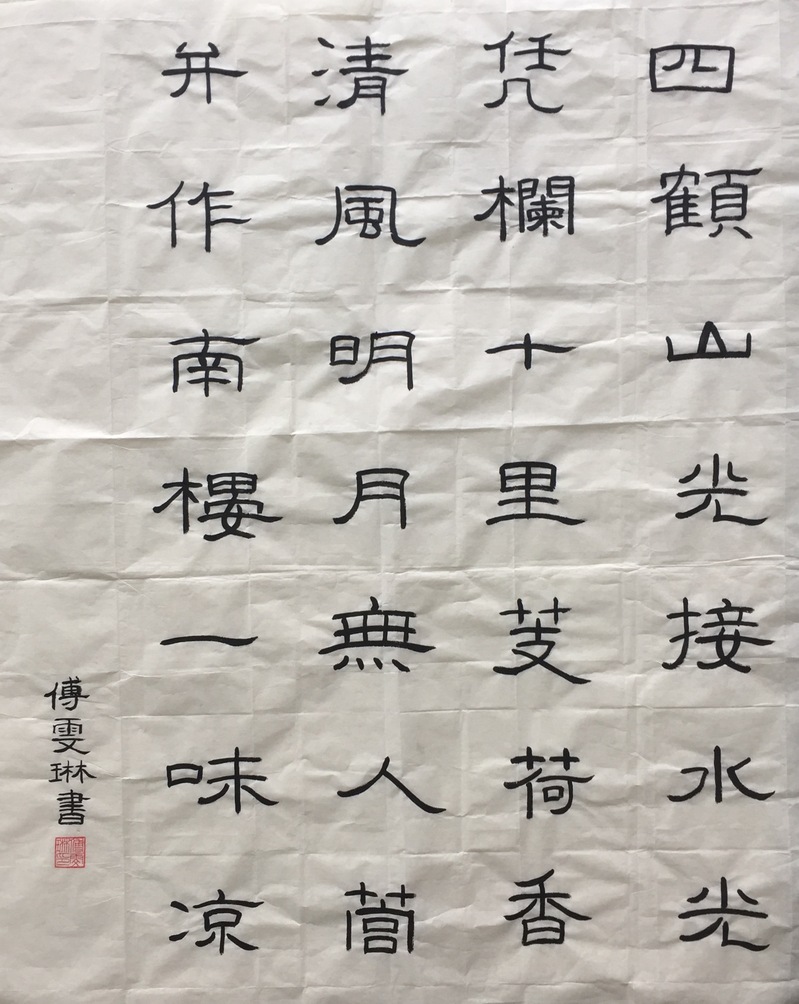 四顧山光接水光
凭欄十里芰荷香
清風明月無人菅
并作南樓一味凉
傅雯琳書